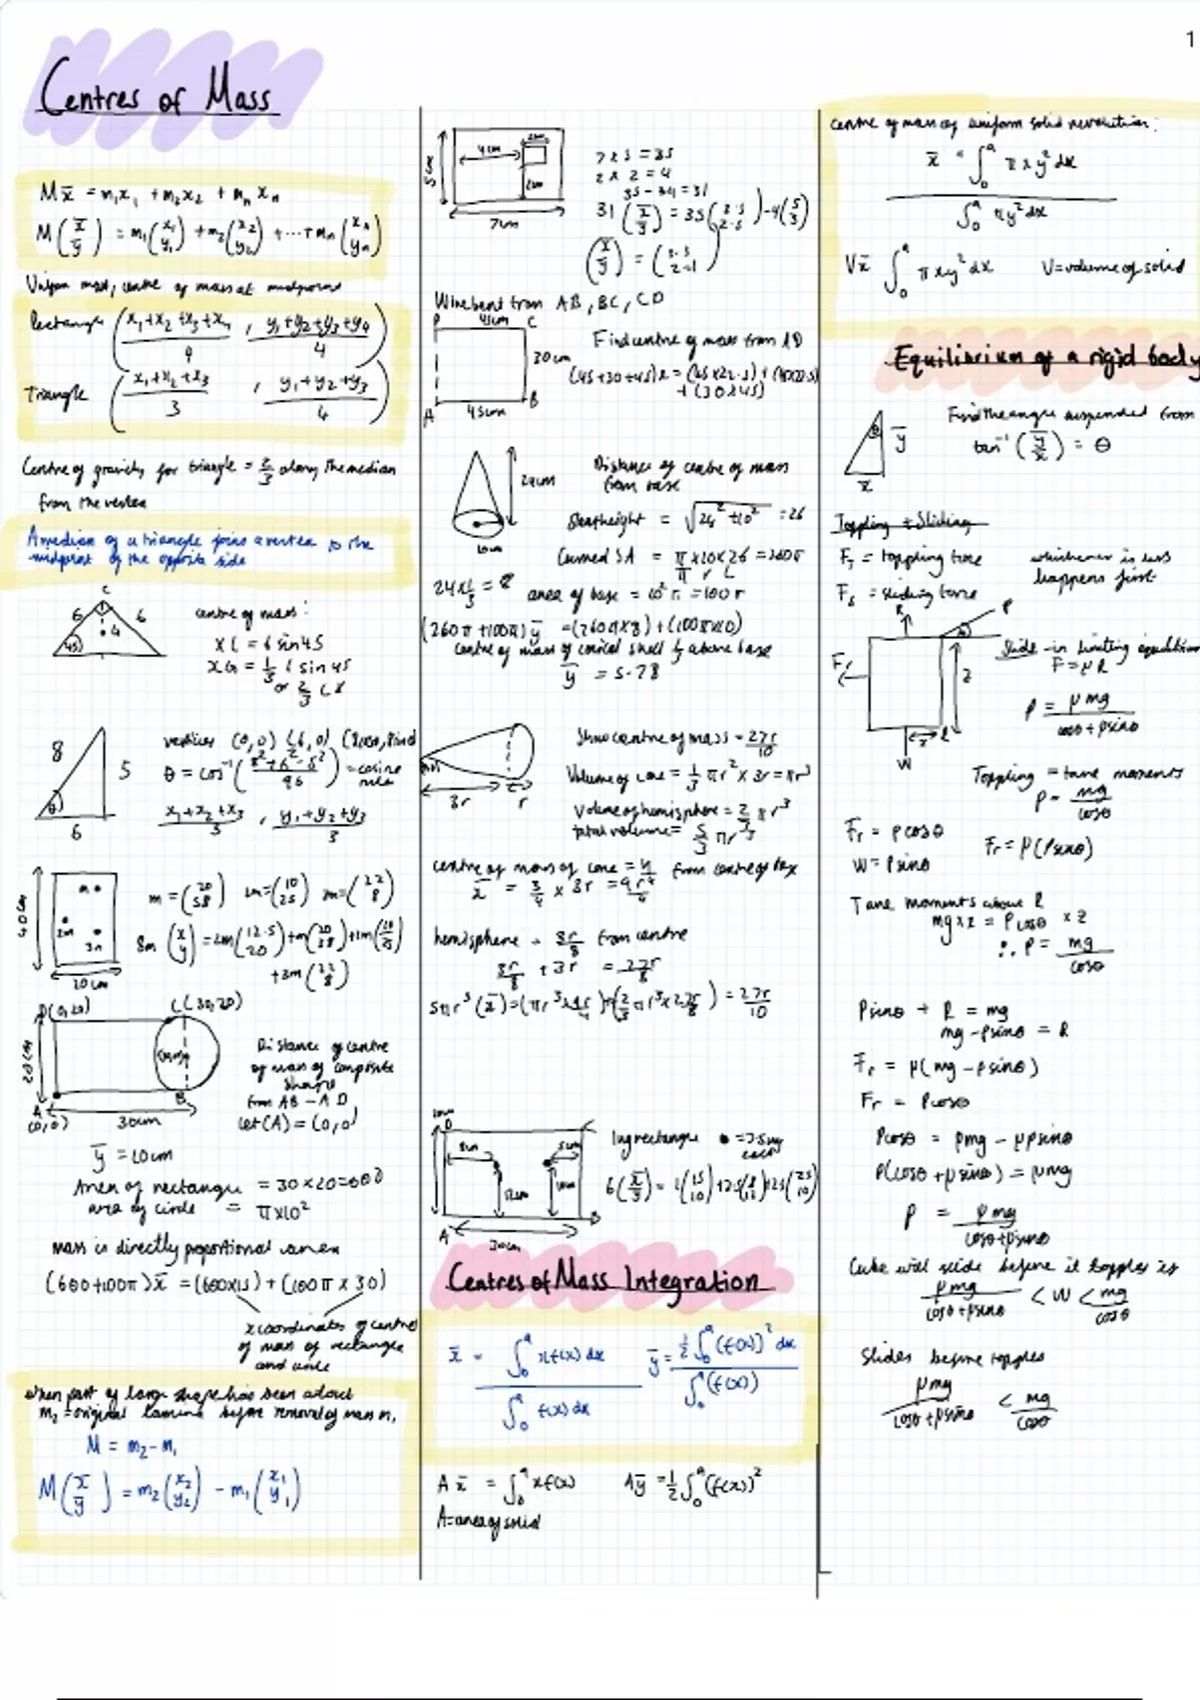 1
Centres of Mass
Mx̄ = m₁x₁ + m₂x₂ + mₙxₙ
M(x̄ ȳ) = m₁(x₁ y₁) + m₂(x₂ y₂) + ... + mₙ(xₙ yₙ)
Uniform rod, centre of mass at midpoint
Rectangle (x₁+x₂+x₃+x₄ / 4 , y₁+y₂+y₃+y₄ / 4)
Triangle (x₁+x₂+x₃ / 3 , y₁+y₂+y₃ / 4)
Centre of gravity for triangle = 2/3 along the median
from the vertex
A median of a triangle joins a vertex to the
midpoint of the opposite side
C
6 6
4
45
centre of mass:
XC = 6 sin 45
XG = 1/3 6 sin 45
or 2/3 CX
8 5
θ
6
vertices (0,0) (6,0)
θ = cos⁻¹(8²+6²-5² / 96) = cosine
rule
x₁+x₂+x₃ / 3 , y₁+y₂+y₃ / 3
40cm
2m 3m
20cm
8m(x y) =
+3m(22 8)
D(0,20) C(30,20)
20cm
A B
(0,0) 30cm
Distance of centre
of mass of composite
shape
from AB - AD
let (A) = (0,0)
ȳ = 10cm
Area of rectangle = 30×20=600
area of circle = π×10²
mass is directly proportional
(600+100π)x̄ = (600×15) + (100π×30)
x coordinates of centre
of mass of rectangle
and circle
When part of large shape has been
m₂ = original lamina before removal of mass m₁
M = m₂-m₁
M(x̄ ȳ) = m₂(x₂ y₂) - m₁(x₁ y₁)
5cm 4cm 2cm
2cm
7cm
7×5=35
2×2=4
35-34=31
31(x̄ ȳ) = 35(3.5 2.5) -4(5 3)
Wire bent from AB, BC, CD
45cm C
30cm
A 45cm B
Find centre of mass from AD
(45+30+45)x = (45×22.5) + (45×22.5)
+ (30×45)
24cm
10cm
Distance of centre of mass
from base
Slant height = √24²+10² = 26
Curved SA = π×10×26 = 260π
π r L
24×1/3 = 8 area of base = 10²π = 100π
(260π+100π)ȳ = (260π×8)+(100π×0)
centre of mass of conical shell 1/3 above base
ȳ = 5.78
3r r
Show centre of mass = 27r/10
Volume of cone = 1/3 πr² × 3r = πr³
Volume of hemisphere = 2/3 πr³
total volume = 5/3 πr³
centre of mass of cone = from centre of
x̄ = 3/4 × 3r =
hemisphere = 3r/8 from centre
3r/8 + 3r = 27r/8
= 27r/10
D C
8cm 5cm
12cm 10cm
A B
30cm
1kg rectangle ● = 2.5kg
each
6(x̄ ȳ) = 1(15 10) + 2.5(8 12) + 2.5(25 10)
Centres of Mass Integration
x̄ = ∫₀ᵃ xf(x) dx / ∫₀ᵃ f(x) dx ȳ = ½∫₀ᵃ (f(x))² dx / ∫₀ᵃ (f(x))
Ax̄ = ∫₀ᵃ xf(x) Aȳ = ½∫₀ᵃ (f(x))²
A = area of solid
Centre of mass of uniform solid revolution:
x̄ = ∫₀ᵃ πxy² dx / ∫₀ᵃ πy² dx
Vx̄ ∫₀ᵃ πxy² dx V = volume of solid
Equilibrium of a rigid body
θ ȳ
x̄
Find the angle suspended from
tan⁻¹(ȳ/x̄) = θ
Toppling + Sliding
Fₜ = toppling force
Fₛ = sliding force
whichever is less
happens first
R P
Fr θ
2
W
Slide - in limiting equilibrium
F = μR
P = μmg / cosθ + μsinθ
Toppling = take moments
P = mg / cosθ
Fr = Pcosθ
Fr = μ(Psinθ)
W = Psinθ
Take moments above R
mg×2 = Pcosθ × 2
∴ P = mg / cosθ
Psinθ + R = mg
mg - Psinθ = R
Fr = μ(mg - Psinθ)
Fr = Pcosθ
Pcosθ = μmg - μPsinθ
P(cosθ + μsinθ) = μmg
P = μmg / cosθ+μsinθ
Cube will slide before it topples if
μmg / cosθ+μsinθ < W < mg / cosθ
Slides before topples
μmg / cosθ+μsinθ < mg / cosθ